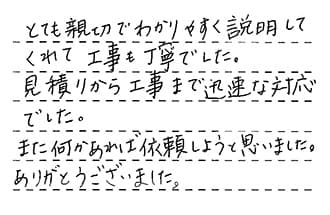 とても親切でわかりやすく説明して
くれて工事も丁寧でした。
見積りから工事まで迅速な対応
でした。
また何かあれば依頼しようと思いました。
ありがとうございました。